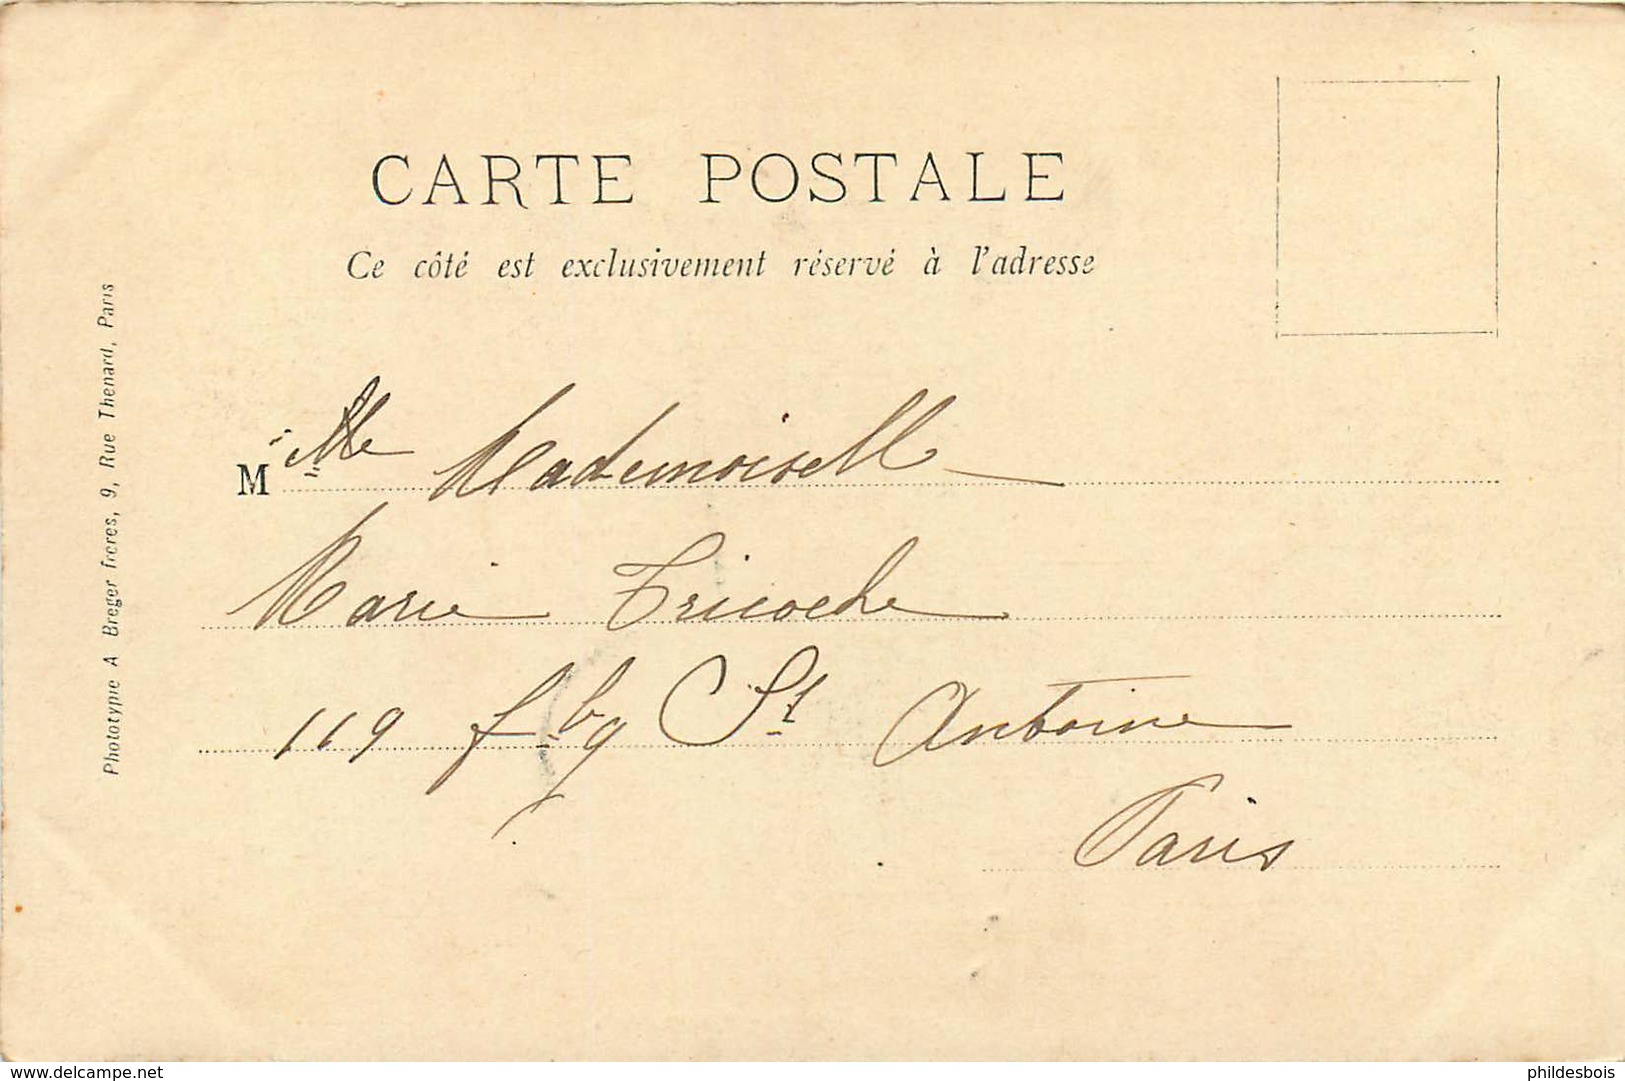 CARTE POSTALE
Ce côté est exclusivement réservé à l'adresse
M lle Mademoiselle
Marie Tricoche
119 fbg St Antoine
Paris
Phototypie A Breger frères, 9, Rue Thenard, Paris
delcampe.net
phildesbois